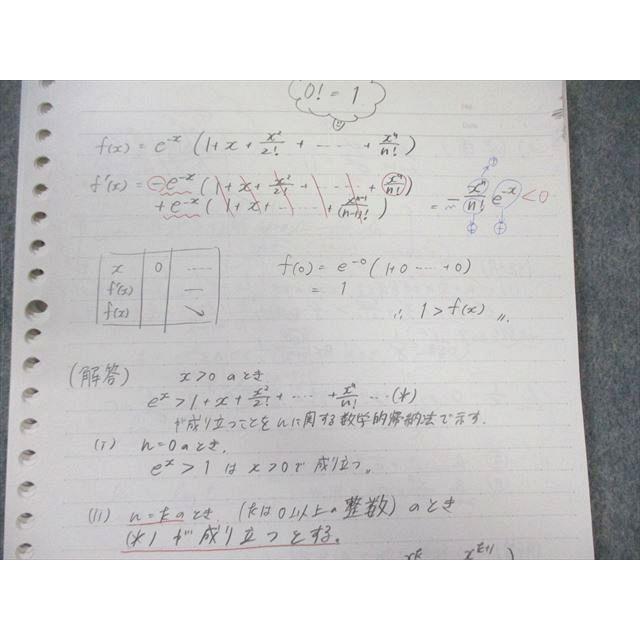 0! = 1
f(x) = e^{-x} (1 + x + x²/2! + ...... + xⁿ/n!)
f'(x) = -e^{-x} (1 + x + x²/2! + ...... + xⁿ/n!)
+ e^{-x} (1 + x + ...... + x^{n-1}/(n-1)!) = - xⁿ/n! e^{-x} < 0
⊕
⊕ ⊕
x 0 ......
f'(x) −
f(x) ↘
f(0) = e^{-0} (1+0 ...... +0)
= 1
∴ 1 > f(x) 〃
(解答) x>0 のとき
e^x > 1 + x + x²/2! + ...... + xⁿ/n! ... (*)
が成り立つことをnに関する数学的帰納法で示す.
(i) n=0のとき,
e^x > 1 は x>0で成り立つ。
(ii) n=kのとき (kは0以上の整数) のとき
(*) が成り立つとする。
x^k x^{k+1} )